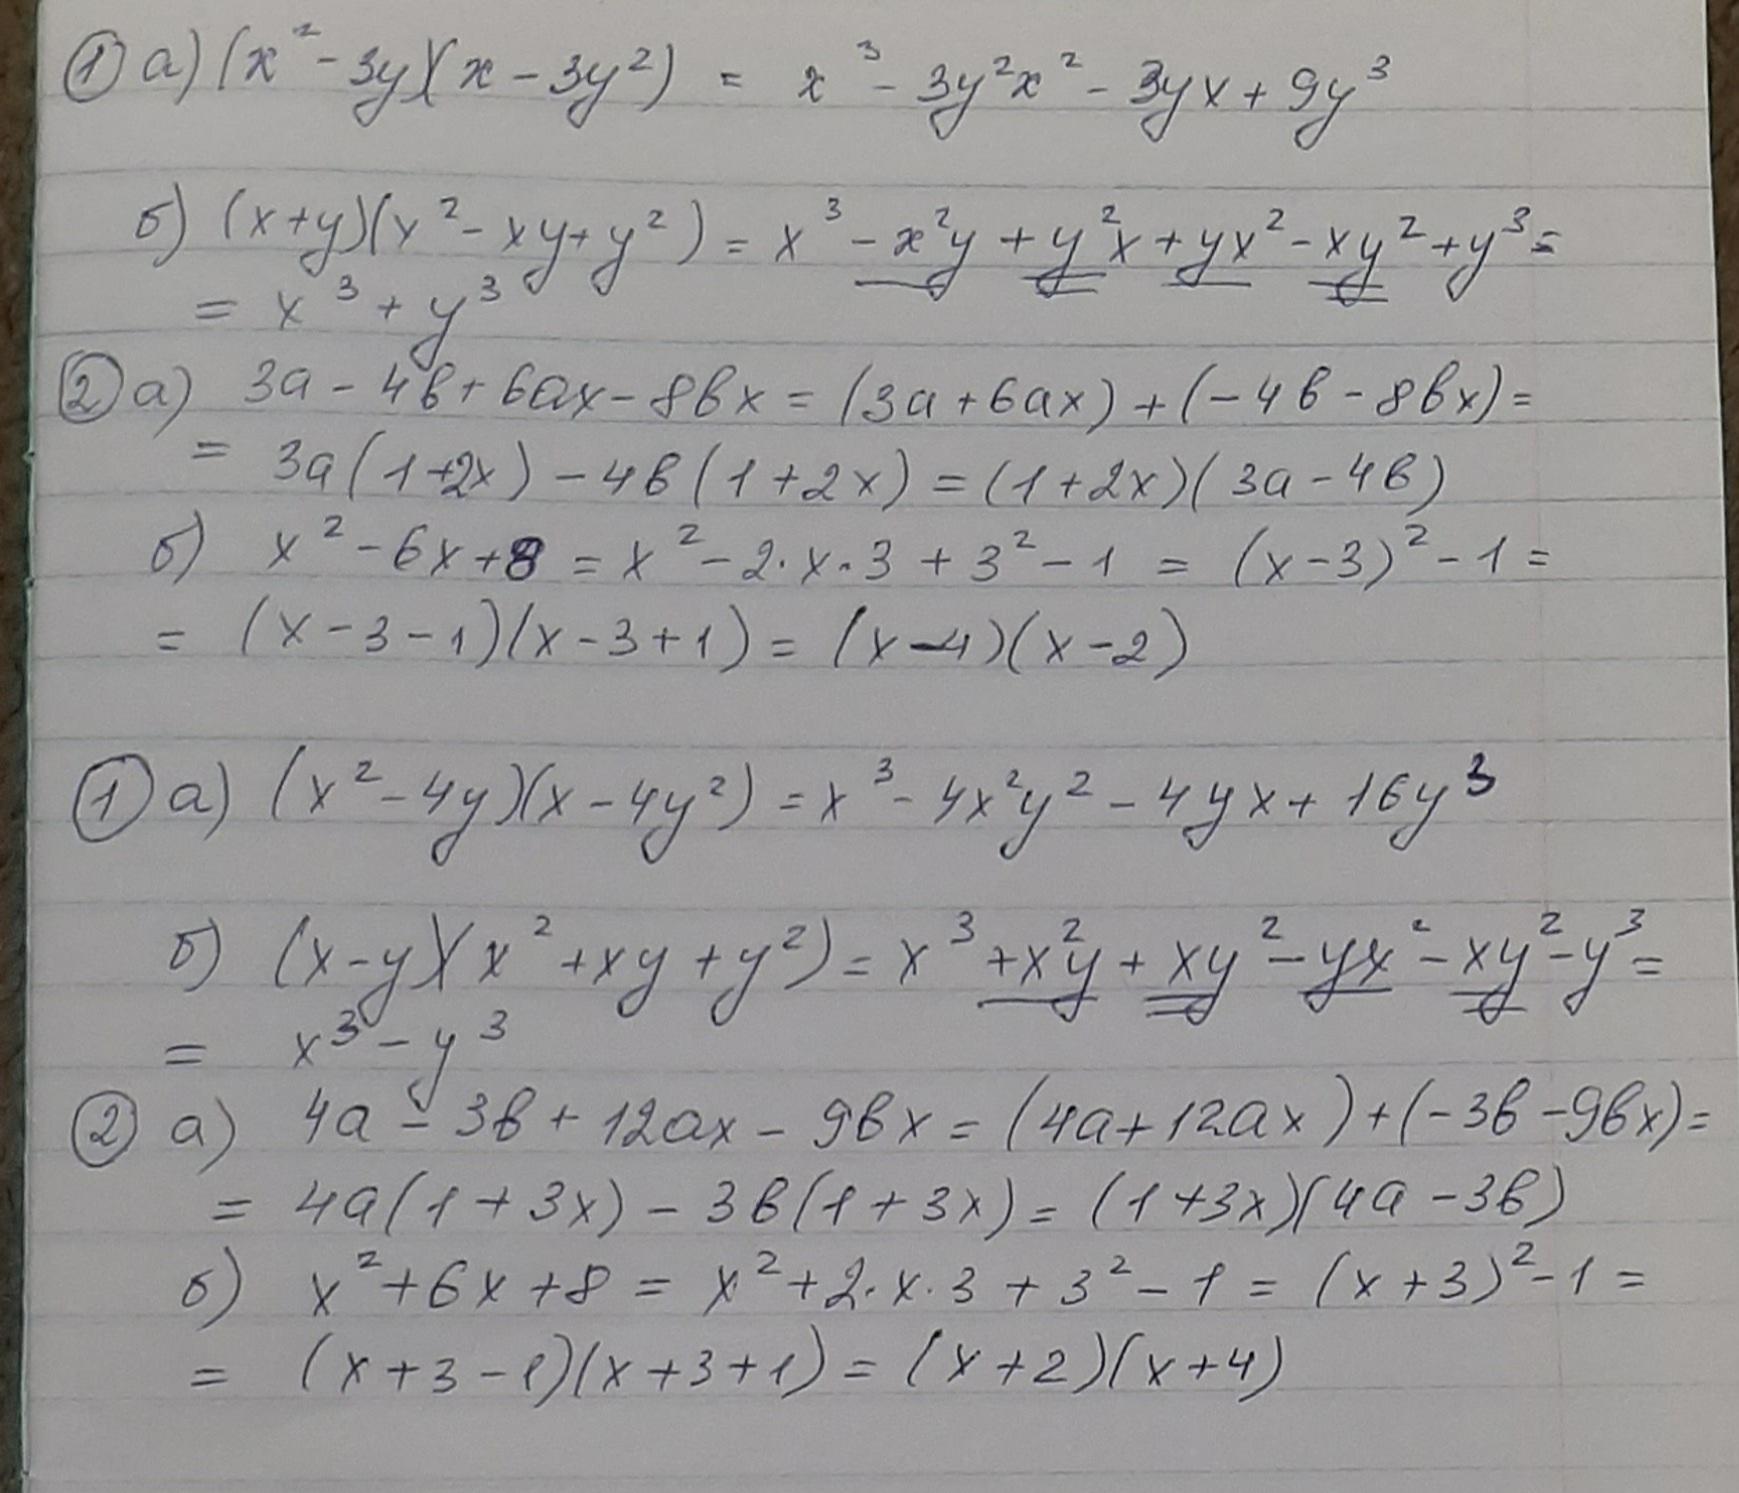 ① а) (x² - 3y)(x - 3y²) = x³ - 3y²x² - 3yx + 9y³
б) (x+y)(x² - xy + y²) = x³ - x²y + y²x + yx² - xy² + y³ =
= x³ + y³
② а) 3a - 4в + 6ax - 8вx = (3a + 6ax) + (-4в - 8вx) =
= 3a(1+2x) - 4в(1+2x) = (1+2x)(3a - 4в)
б) x² - 6x + 8 = x² - 2·x·3 + 3² - 1 = (x-3)² - 1 =
= (x - 3 - 1)(x - 3 + 1) = (x - 4)(x - 2)
① а) (x² - 4y)(x - 4y²) = x³ - 4x²y² - 4yx + 16y³
б) (x-y)(x² + xy + y²) = x³ + x²y + xy² - yx² - xy² - y³ =
= x³ - y³
② а) 4a - 3в + 12ax - 9вx = (4a + 12ax) + (-3в - 9вx) =
= 4a(1 + 3x) - 3в(1 + 3x) = (1+3x)(4a - 3в)
б) x² + 6x + 8 = x² + 2·x·3 + 3² - 1 = (x+3)² - 1 =
= (x + 3 - 1)(x + 3 + 1) = (x + 2)(x + 4)